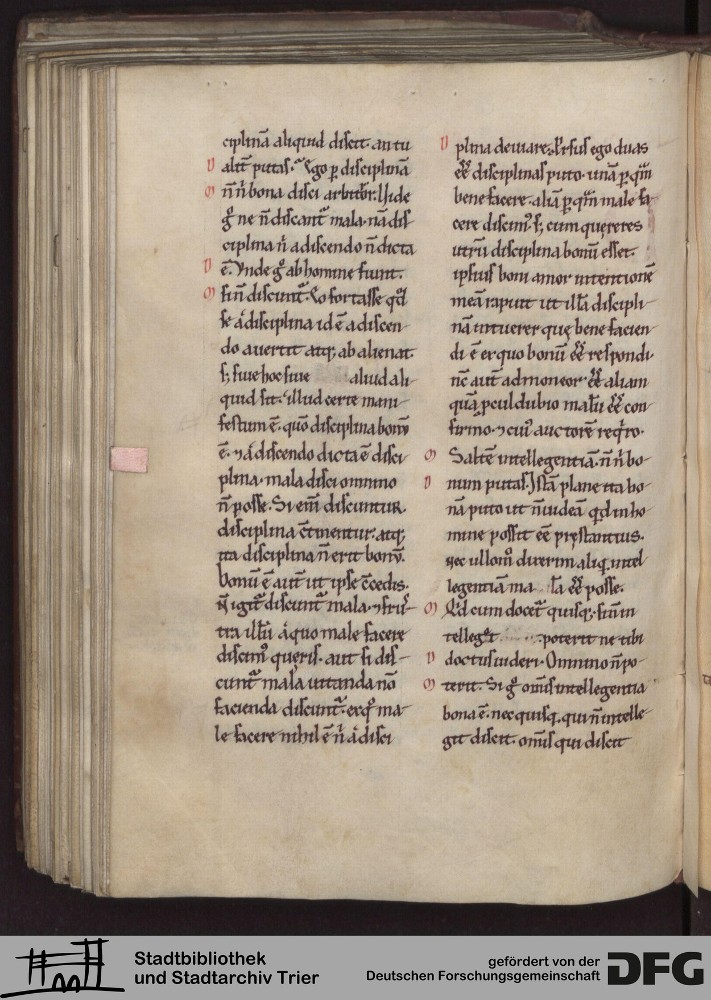 ciplinā aliquid discit. an tu
D alit̄ putas. Ego p̄ disciplinā
M n̄ n̄ bona disci arbitror. Vide
ḡ ne n̄ discant̄ mala. nā dis
ciplina n̄ a discendo n̄ dicta
D ē. Vnde ḡ ab homine fiunt.
M si n̄ discunt̄. Eo fortasse qd̄
se a disciplina id ē a discen
do auertit atq; ab alienat.
s; siue hoc siue aliud ali
quid sit. illud certe mani
festum ē. quō disciplina bonū
ē. ⁊ a discendo dicta ē disci
plina. mala disci omnino
n̄ posse. Si enī discuntur.
disciplina c̄tinentur. atq;
ita disciplina n̄ erit bonū.
bonū ē aut̄ ut ipse c̄cedis.
N̄ igit̄ discunt̄ mala. ⁊ frus
tra illū a quo male facere
discim᷒ queris. aut si dis
cunt̄ mala uitanda nō
facienda discunt̄. ex q̊ ma
le facere nihil ē n̄ a disci
D plina deuiare. Prorsus ego duas
ēē disciplinas puto. unā p̄ quā
bene facere. aliā p̄ quā male fa
cere discim᷒. s; cum quereres
utrū disciplina bonū esset.
ipsius boni amor intentionē
meā rapuit ut illā discipli
nā intuerer quę bene facien
di ē ex quo bonū ēē respondi.
nc̄ aut̄ admoneor. ēē aliam
quā p̄cul dubio malū ēē con
firmo. ⁊ cui᷒ auctorē req̄ro.
M Saltē intellegentiā. n̄ n̄ bo
D num putas. Istā plane ita bo
nā puto ut n̄ uideā quid in ho
mine possit ēē pręstantius.
nec ullom̊ dixerim aliq̄ intel
legentiā ma lā ēē posse.
M Qd̄ cum docet̄ quisq; si n̄ in
tellegat poterit ne tibi
D doctus uideri. Omnino n̄ po
M terit. Si ḡ omīs intellegentia
bona ē. nec quisq. qui n̄ intelle
git discit. omīs qui discit
Stadtbibliothek
und Stadtarchiv Trier
gefördert von der
Deutschen Forschungsgemeinschaft
DFG